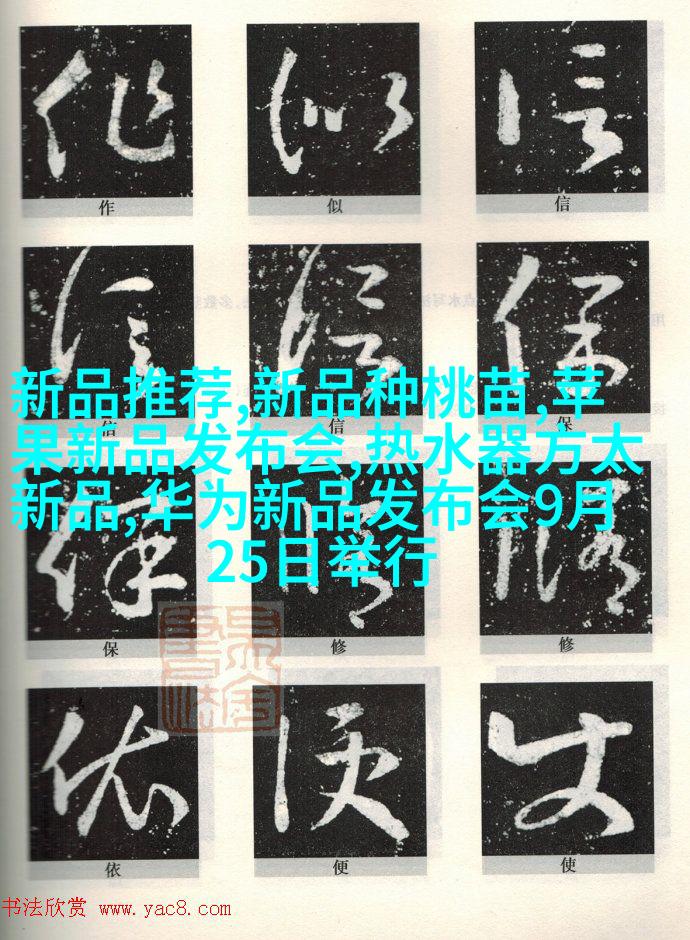 作 似 信
信 信 保
新品推荐,新品种桃苗,苹
果新品发布会,热水器方太
新品,华为新品发布会9月
25日举行
保 修 修
依 便 使
书法欣赏 www.yac8.com